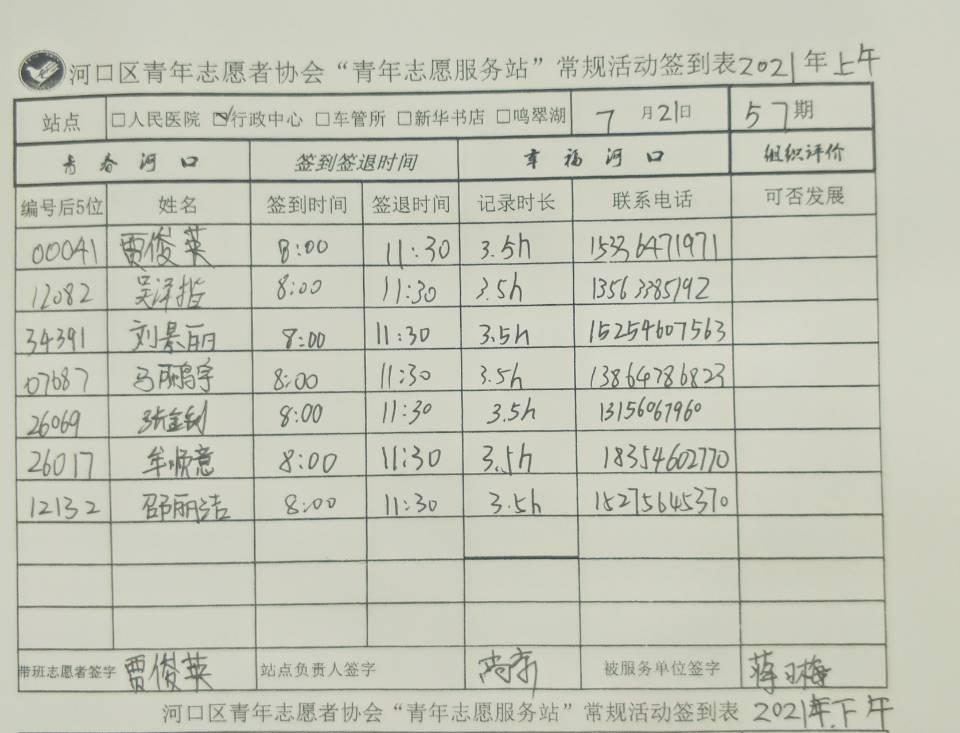 河口区青年志愿者协会“青年志愿服务站”常规活动签到表2021年上午
站点 □人民医院 ☑行政中心 □车管所 □新华书店 □鸣翠湖 7月21日 57期
青春河口 签到签退时间 幸福河口 组织评价
编号后5位 姓名 签到时间 签退时间 记录时长 联系电话 可否发展
00041 贾俊英 8:00 11:30 3.5h 15336471971
12082 8:00 11:30 3.5h 13563385192
34391 刘景丽 8:00 11:30 3.5h 15254607563
07687 马丽鸣宇 8:00 11:30 3.5h 13864786823
26069 张金钊 8:00 11:30 3.5h 13156067960
26017 牟顺意 8:00 11:30 3.5h 18354602770
12132 邵丽洁 8:00 11:30 3.5h 15275645370
带班志愿者签字 贾俊英 站点负责人签字 尚京 被服务单位签字
河口区青年志愿者协会“青年志愿服务站”常规活动签到表 2021年下午